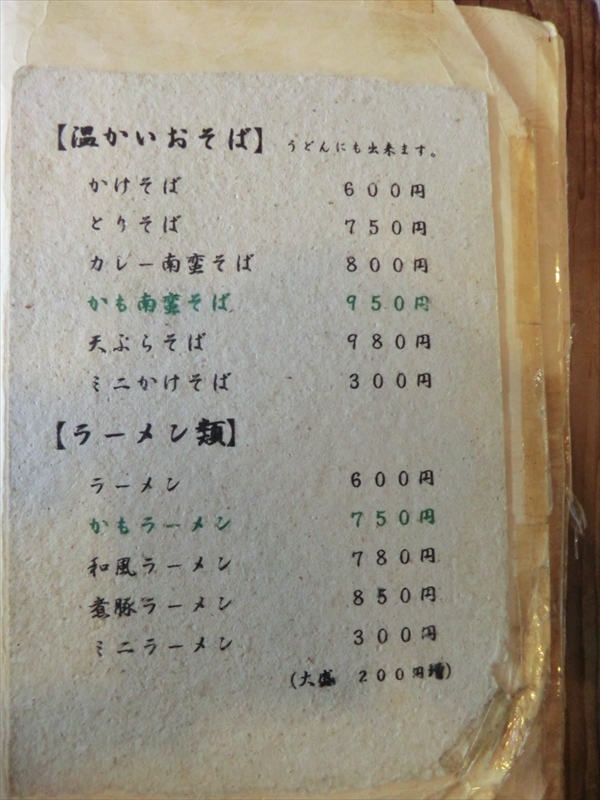 【温かいおそば】 うどんにも出来ます。
かけそば ６００円
とりそば ７５０円
カレー南蛮そば ８００円
かも南蛮そば ９５０円
天ぷらそば ９８０円
ミニかけそば ３００円
【ラーメン類】
ラーメン ６００円
かもラーメン ７５０円
和風ラーメン ７８０円
煮豚ラーメン ８５０円
ミニラーメン ３００円
(大盛 ２００円増)